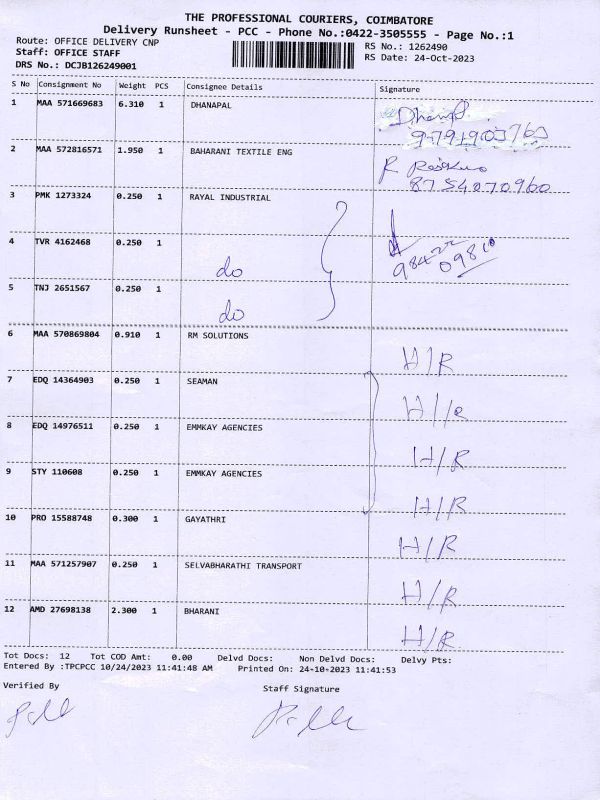 THE PROFESSIONAL COURIERS, COIMBATORE
Delivery Runsheet - PCC - Phone No.:0422-3505555 - Page No.:1
Route: OFFICE DELIVERY CNP
RS No.: 1262490
Staff: OFFICE STAFF
RS Date: 24-Oct-2023
DRS No.: DCJB126249001
S No Consignment No Weight PCS Consignee Details Signature
1 MAA 571669683 6.310 1 DHANAPAL
9791903763
2 MAA 572816571 1.950 1 BAHARANI TEXTILE ENG
R
8754070960
3 PMK 1273324 0.250 1 RAYAL INDUSTRIAL
4 TVR 4162468 0.250 1
do
5 TNJ 2651567 0.250 1
do
6 MAA 570869804 0.910 1 RM SOLUTIONS
H/R
7 EDQ 14364903 0.250 1 SEAMAN
H/R
8 EDQ 14976511 0.250 1 EMMKAY AGENCIES
H/R
9 STY 110608 0.250 1 EMMKAY AGENCIES
H/R
10 PRO 15588748 0.300 1 GAYATHRI
H/R
11 MAA 571257907 0.250 1 SELVABHARATHI TRANSPORT
H/R
12 AMD 27698138 2.300 1 BHARANI
H/R
Tot Docs: 12 Tot COD Amt: 0.00 Delvd Docs: Non Delvd Docs: Delvy Pts:
Entered By :TPCPCC 10/24/2023 11:41:48 AM Printed On: 24-10-2023 11:41:53
Verified By Staff Signature